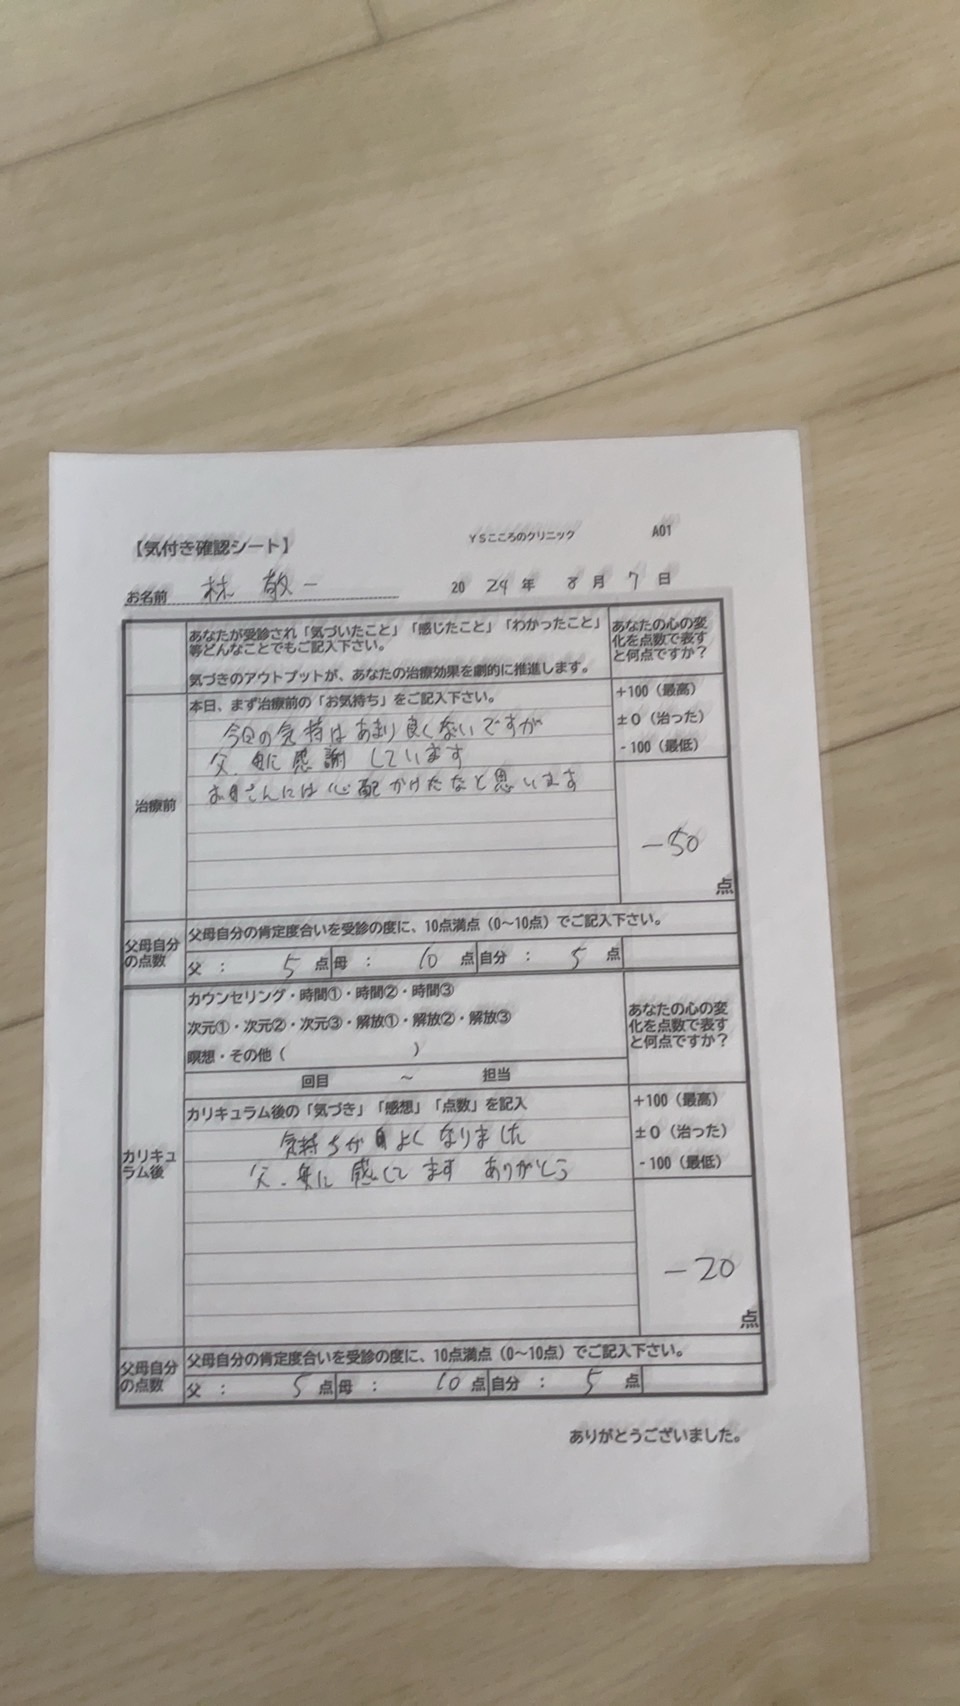 【気付き確認シート】
YSこころのクリニック
A01
お名前 林 敬一
20 24 年 8 月 7 日
あなたが受診され「気づいたこと」「感じたこと」「わかったこと」
等どんなことでもご記入下さい。
気づきのアウトプットが、あなたの治療効果を劇的に推進します。
あなたの心の変
化を点数で表す
と何点ですか？
治療前
本日、まず治療前の「お気持ち」をご記入下さい。
今日の気持はあまり良くないですが
父、母に感謝しています
お母さんには心配かけたなと思います
+100（最高）
±0（治った）
-100（最低）
-50
点
父母自分
の点数
父母自分の肯定度合いを受診の度に、10点満点（0～10点）でご記入下さい。
父 ： 5 点 母 ： 10 点 自分 ： 5 点
カリキュ
ラム後
カウンセリング・時間①・時間②・時間③
次元①・次元②・次元③・解放①・解放②・解放③
瞑想・その他（ ）
回目 ～ 担当
あなたの心の変
化を点数で表す
と何点ですか？
カリキュラム後の「気づき」「感想」「点数」を記入
気持ちが よくなりました
父、母に 感してます ありがとう
+100（最高）
±0（治った）
-100（最低）
-20
点
父母自分
の点数
父母自分の肯定度合いを受診の度に、10点満点（0～10点）でご記入下さい。
父 ： 5 点 母 ： 10 点 自分 ： 5 点
ありがとうございました。